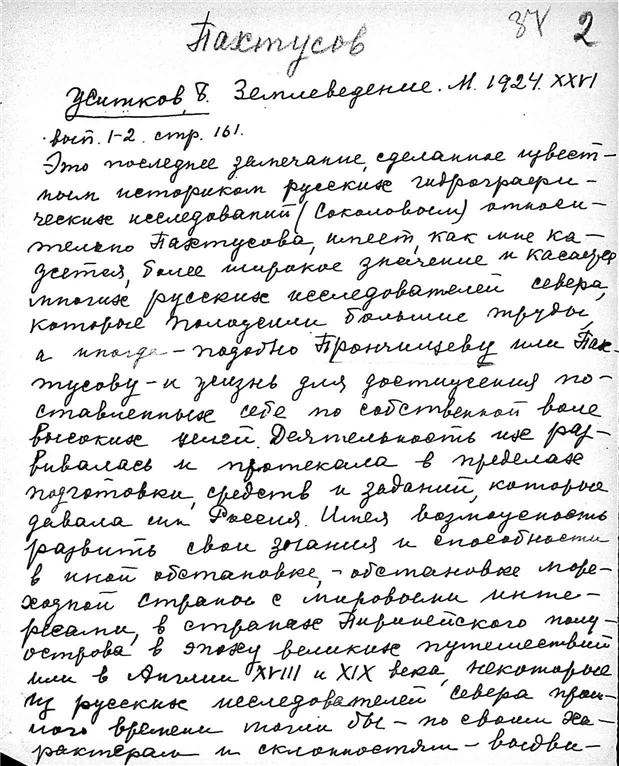 Пахтусов
34 2
Житков, Б. Землеведение. М. 1924. XXVI
вып. 1-2. стр. 161.
Это последнее замечание, сделанное извест-
ным историком русских гидрографи-
ческих исследований (Соколовым) относи-
тельно Пахтусова, имеет, как мне ка-
жется, более широкое значение и касается
многих русских исследователей севера,
которые положили большие труды,
а иногда - подобно Прончищеву или Пах-
тусову - и жизнь для достижения по-
ставленных себе по собственной воле
высоких целей. Деятельность их раз-
вивалась и протекала в пределах
подготовки, средств и заданий, которые
давала им Россия. Имея возможность
развить свои знания и способности
в иной обстановке, - обстановке море-
ходной страны с мировыми инте-
ресами, в странах Пиринейского полу-
острова в эпоху великих путешествий
или в Англии XVIII и XIX века, некоторые
из русских исследователей севера прош-
лого времени могли бы - по своим ха-
рактерам и склонностям - выдви-